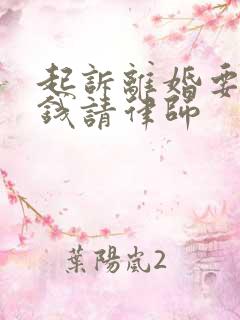 起訴離婚要
錢請律師
葉陽嵐2